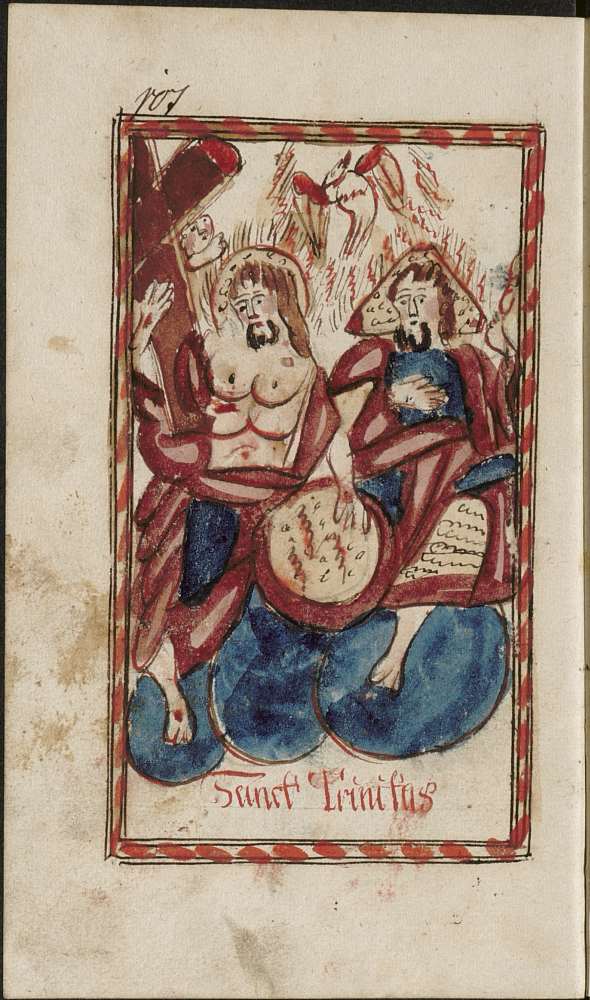 107
Sanct Trinitas